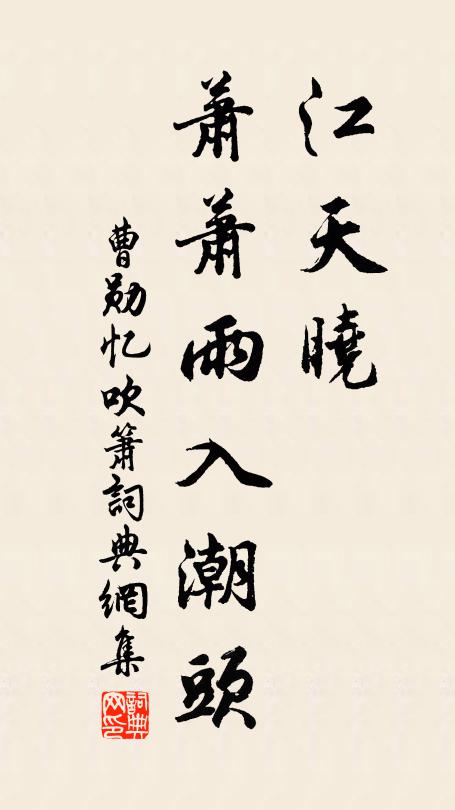 江天曉
蕭蕭雨入潮頭
曹勋忆吹箫詞典網集
詞典网印